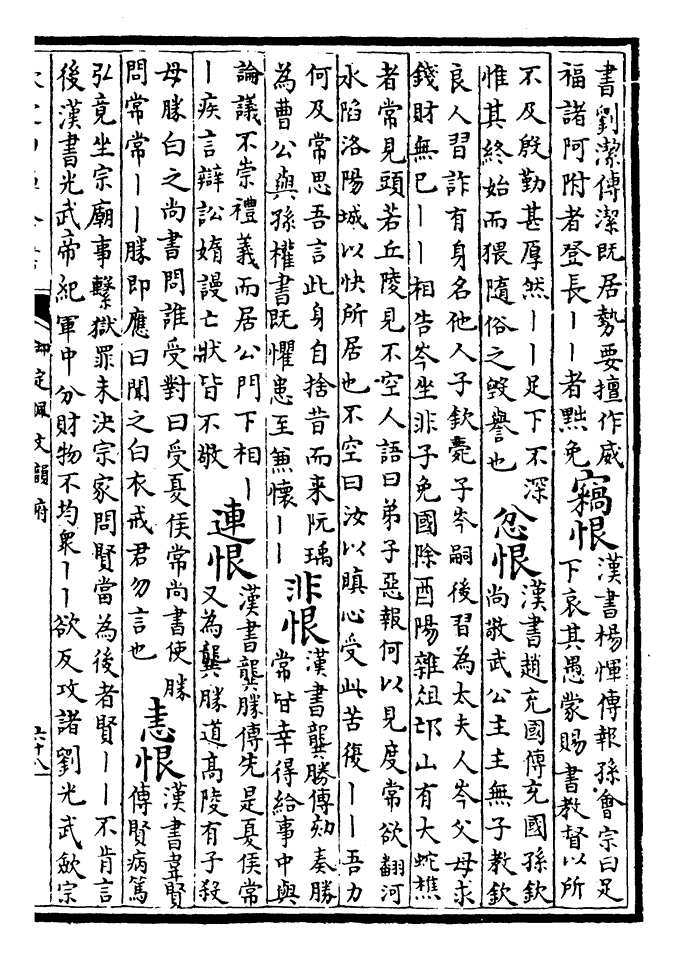 書劉潔傳潔既居勢要擅作威
福諸阿附者登長丨丨者黜免
竊恨
漢書楊惲傳報孫會宗曰足
下哀其愚蒙賜書教督以所
不及殷勤甚厚然丨丨足下不深
惟其終始而猥隨俗之毀譽也
忿恨
漢書趙充國傳充國孫欽
尚敬武公主主無子教欽
良人習詐有身名他人子欽薨子岑嗣後習為太夫人岑父母求
錢財無已丨丨相告岑坐非子免國除酉陽雜俎邙山有大蛇樵
者常見頭若丘陵見不空人語曰弟子惡報何以見度常欲翻河
水陷洛陽城以快所居也不空曰汝以瞋心受此苦復丨丨吾力
何及常思吾言此身自捨昔而来阮瑀
為曹公與孫權書既懼患至無懷丨丨
非恨
漢書龔勝傳劾奏勝
常皆幸得給事中與
論議不崇禮義而居公門下相丨
丨疾言辯訟媠謾亡狀皆不敬
連恨
漢書龔勝傳先是夏侯常
又為龔勝道高陵有子殺
母勝白之尚書問誰受對曰受夏侯常尚書使勝
問常常丨丨勝即應曰聞之白衣戒君勿言也
恚恨
漢書韋賢
傳賢病篤
弘竟坐宗廟事繫獄罪未決宗家問賢當為後者賢丨丨不肯言
後漢書光武帝紀軍中分財物不均衆丨丨欲反攻諸劉光武歛宗
御定佩文韻府
六十八